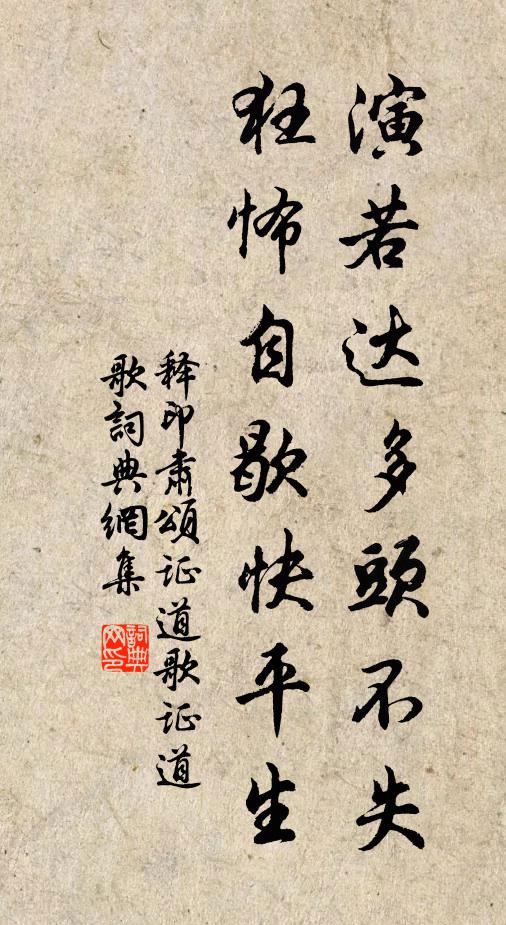 演若达多頭不失
狂怖自歇快平生
释印肃頌证道歌证道
歌詞典網集
詞典网印